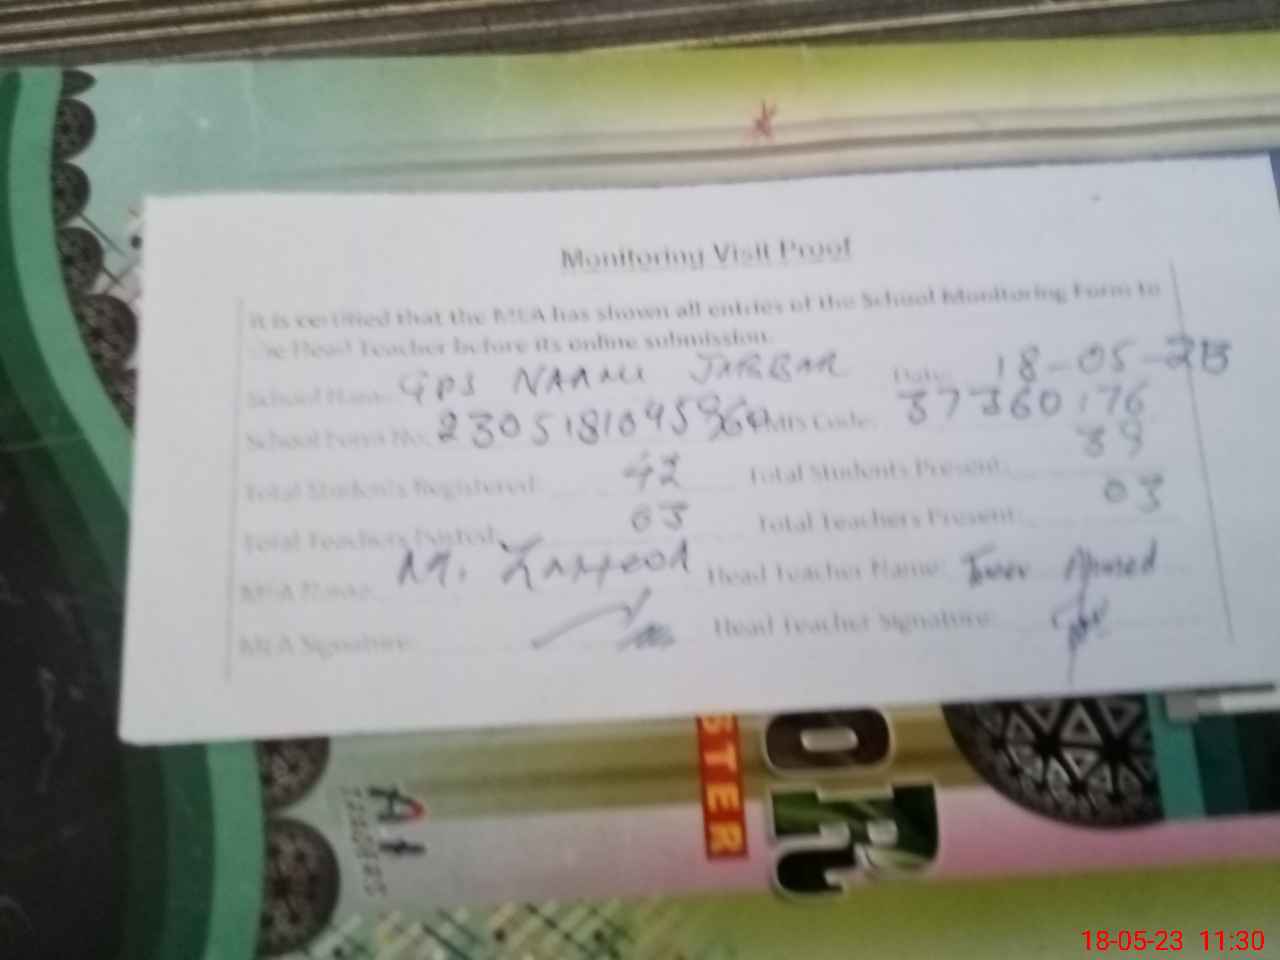 Monitoring Visit Proof
It is certified that the MEA has shown all entries of the School Monitoring Form to
the Head Teacher before its online submission.
School Name: GPS NAAMU JABBAR Date: 18-05-23
School Form No: EMIS Code: 37360176
Total Students Registered: 42 Total Students Present: 39
Total Teachers Posted: 03 Total Teachers Present: 03
MEA Name: M. Head Teacher Name: Ahmed
MEA Signature: Head Teacher Signature:
STER
OR
18-05-23 11:30